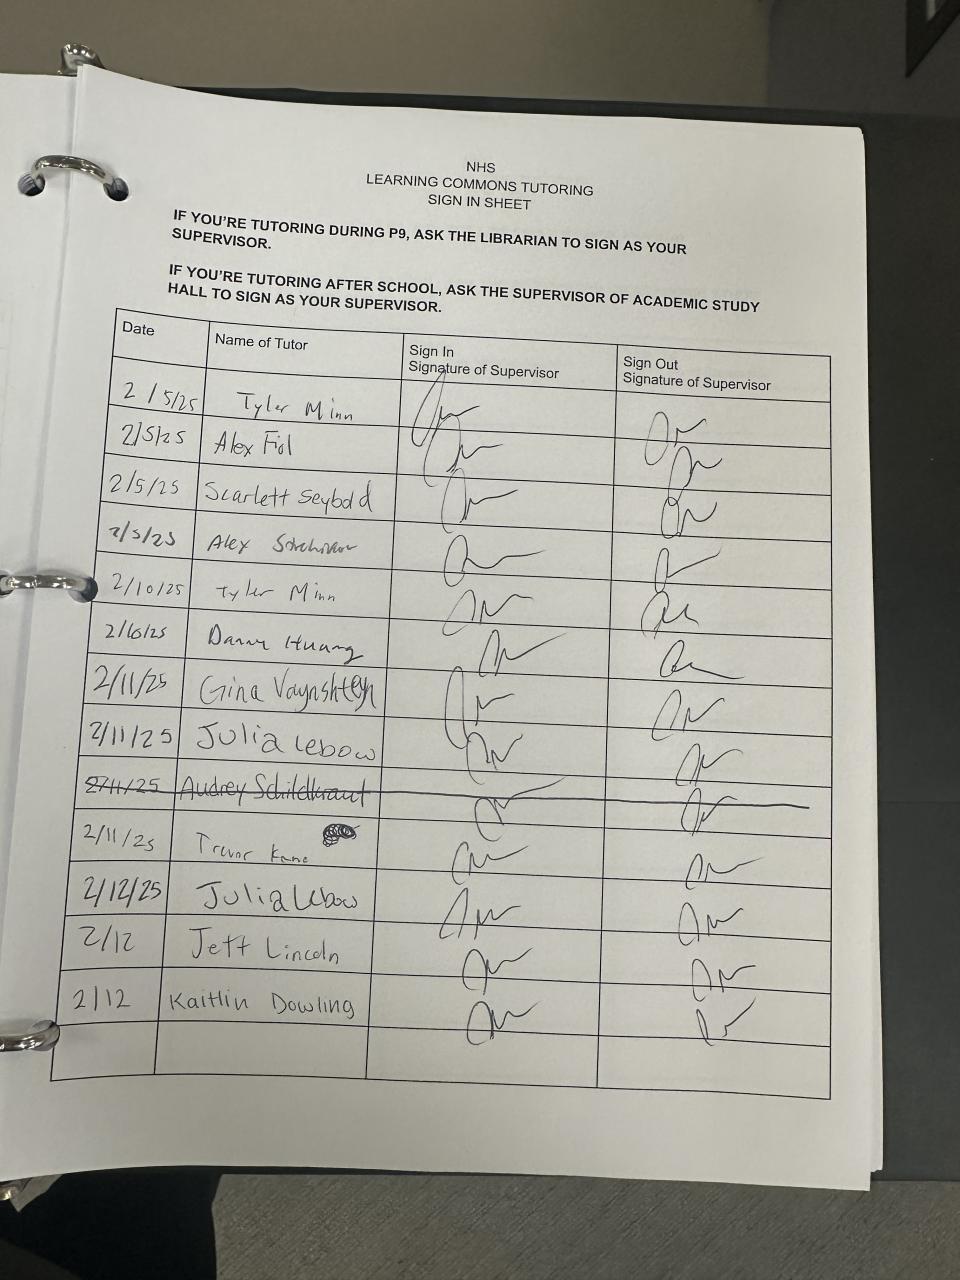 NHS
LEARNING COMMONS TUTORING
SIGN IN SHEET
IF YOU'RE TUTORING DURING P9, ASK THE LIBRARIAN TO SIGN AS YOUR
SUPERVISOR.
IF YOU'RE TUTORING AFTER SCHOOL, ASK THE SUPERVISOR OF ACADEMIC STUDY
HALL TO SIGN AS YOUR SUPERVISOR.
Date Name of Tutor Sign In Sign Out
Signature of Supervisor Signature of Supervisor
2/5/25 Tyler Minn
2/5/25 Alex Fiol
2/5/25 Scarlett Seybold
2/5/25 Alex
2/10/25 Tyler Minn
2/10/25 Danny Huang
2/11/25 Gina Vaynshteyn
2/11/25 Julia Lebow
2/11/25 Audrey Schildkraut
2/11/25 Trevor Kane
2/12/25 Julia Lebow
2/12 Jeff Lincoln
2/12 Kaitlin Dowling